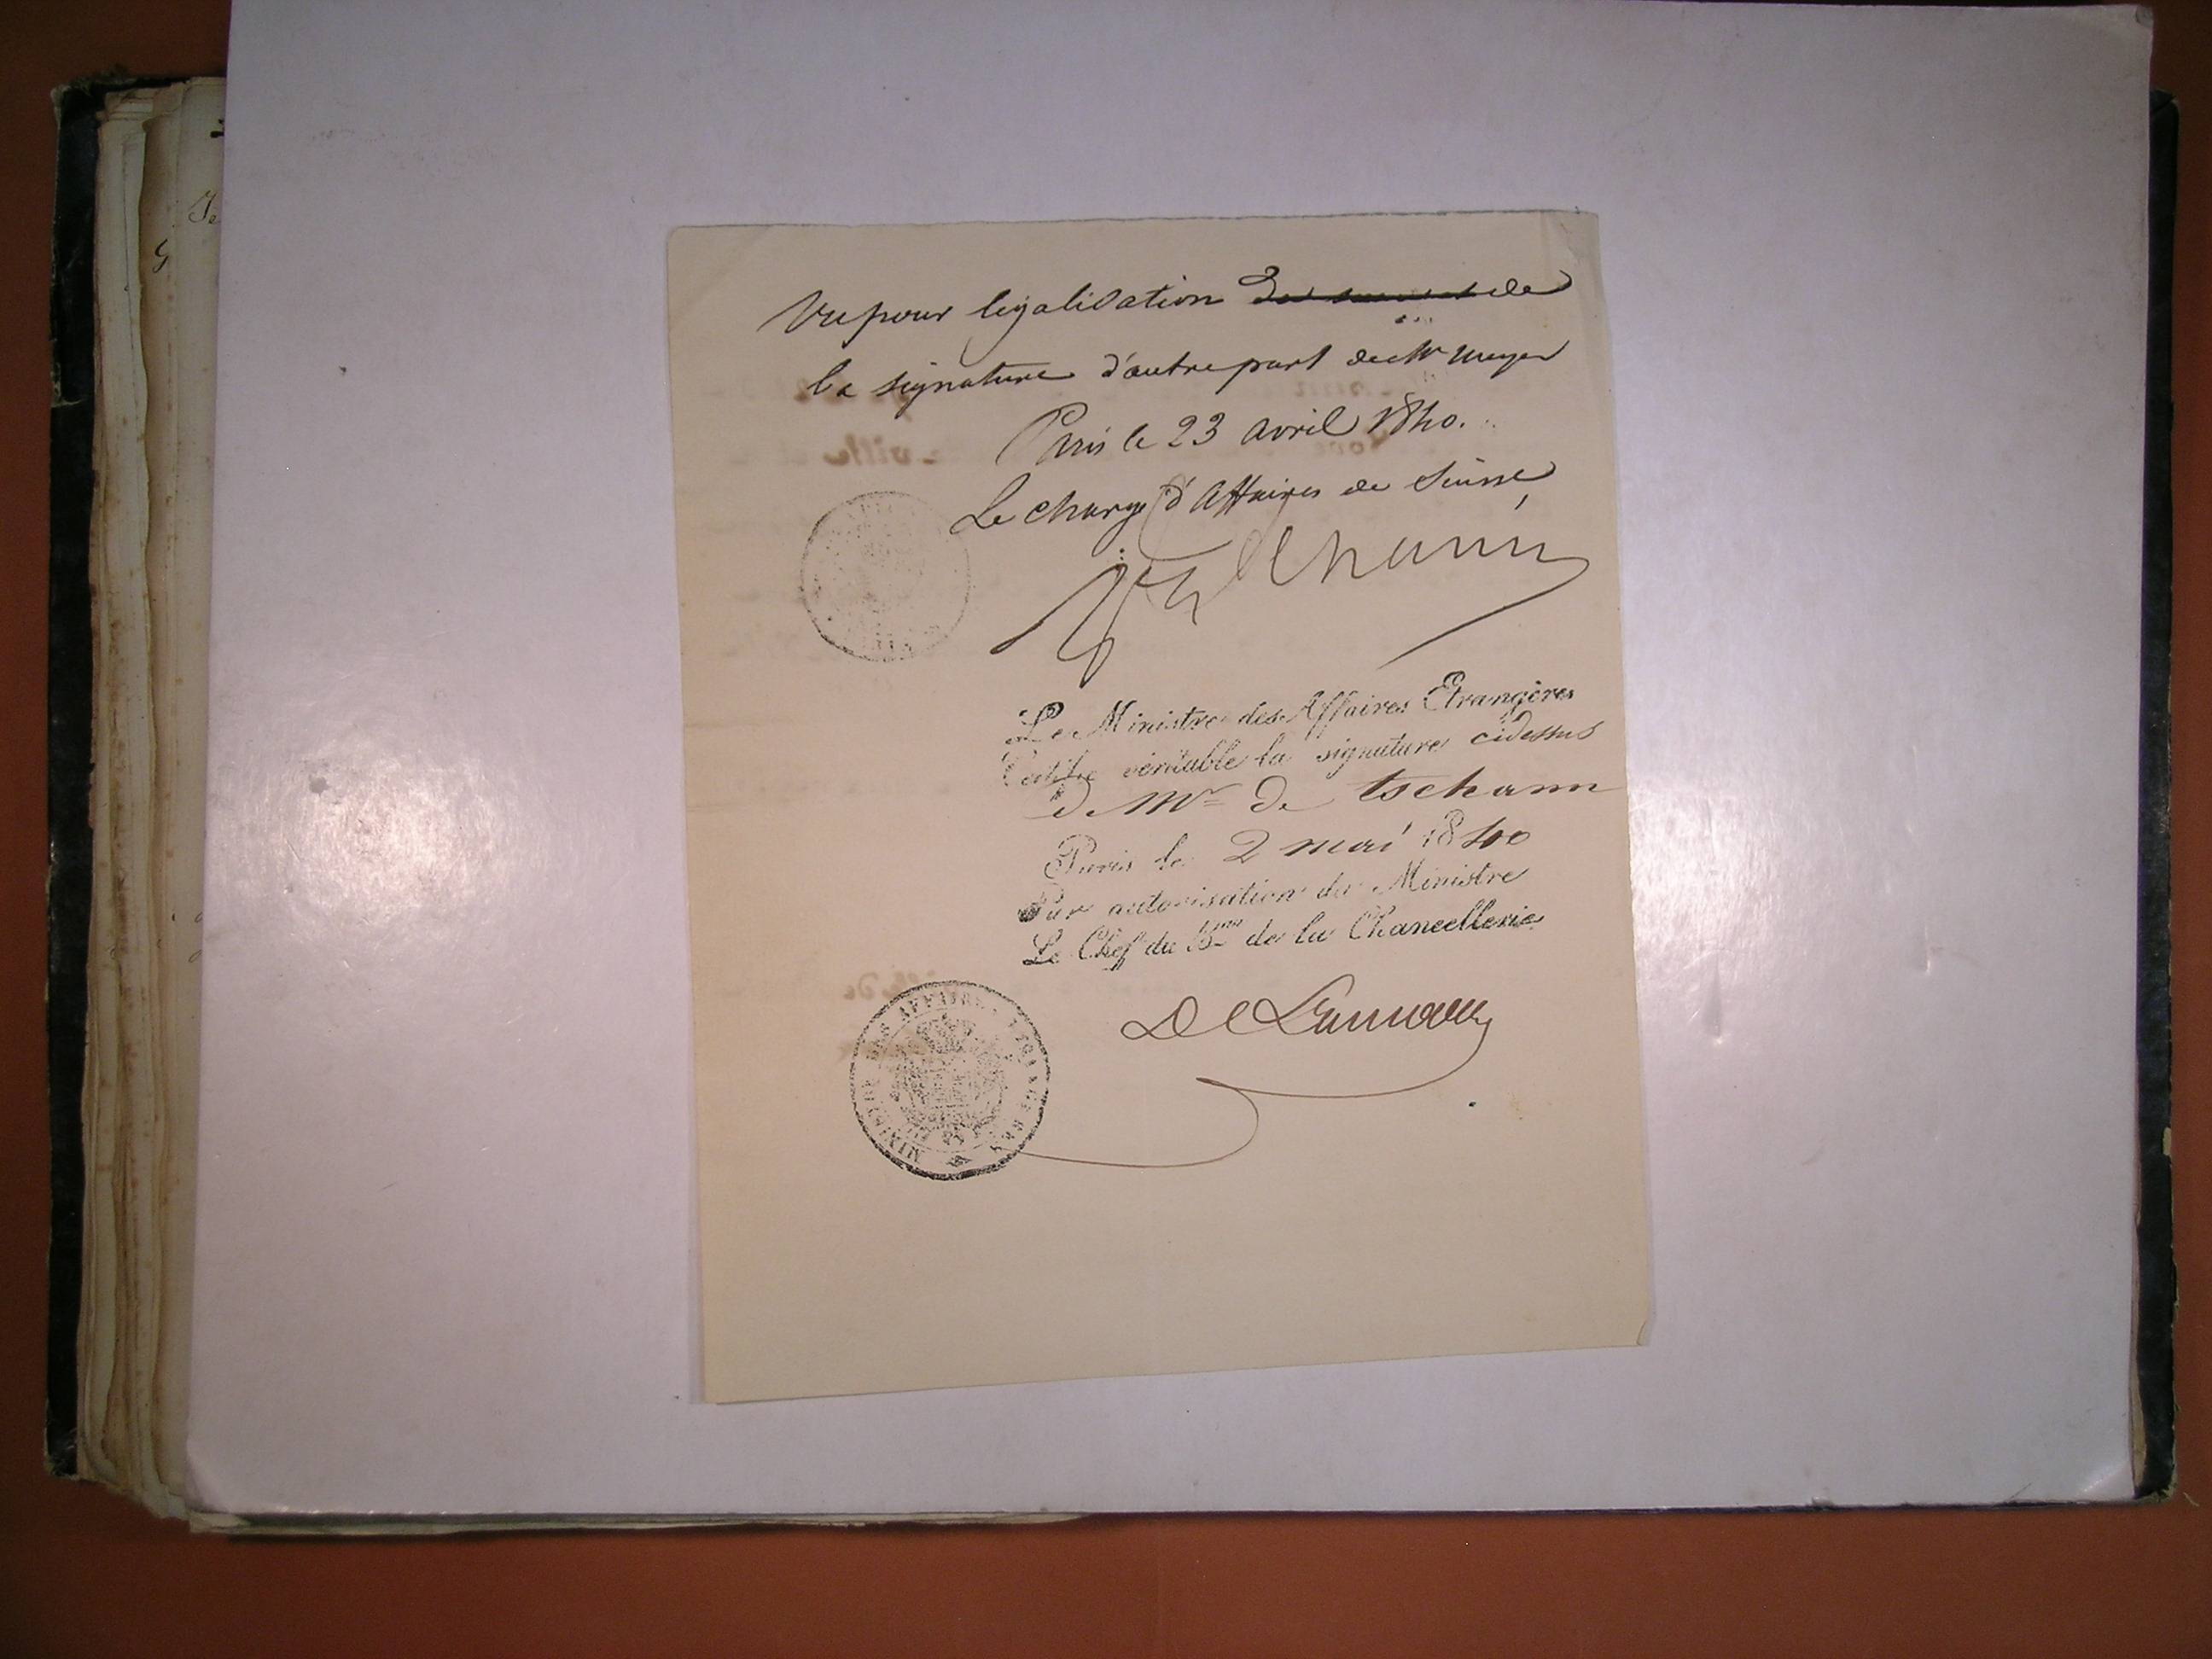 Vu pour légalisation de
la signature d'autre part de Mr Meyer
Paris le 23 avril 1840.
Le chargé d'Affaires de Suisse,
Tschann
Le Ministre des Affaires Etrangères
Certifie véritable la signature cidessus
de Mr de tschann
Paris le 2 mai 1840
Par autorisation du Ministre
Le Chef du Bau de la Chancellerie
MINISTERE DES AFFAIRES ETRANGERES